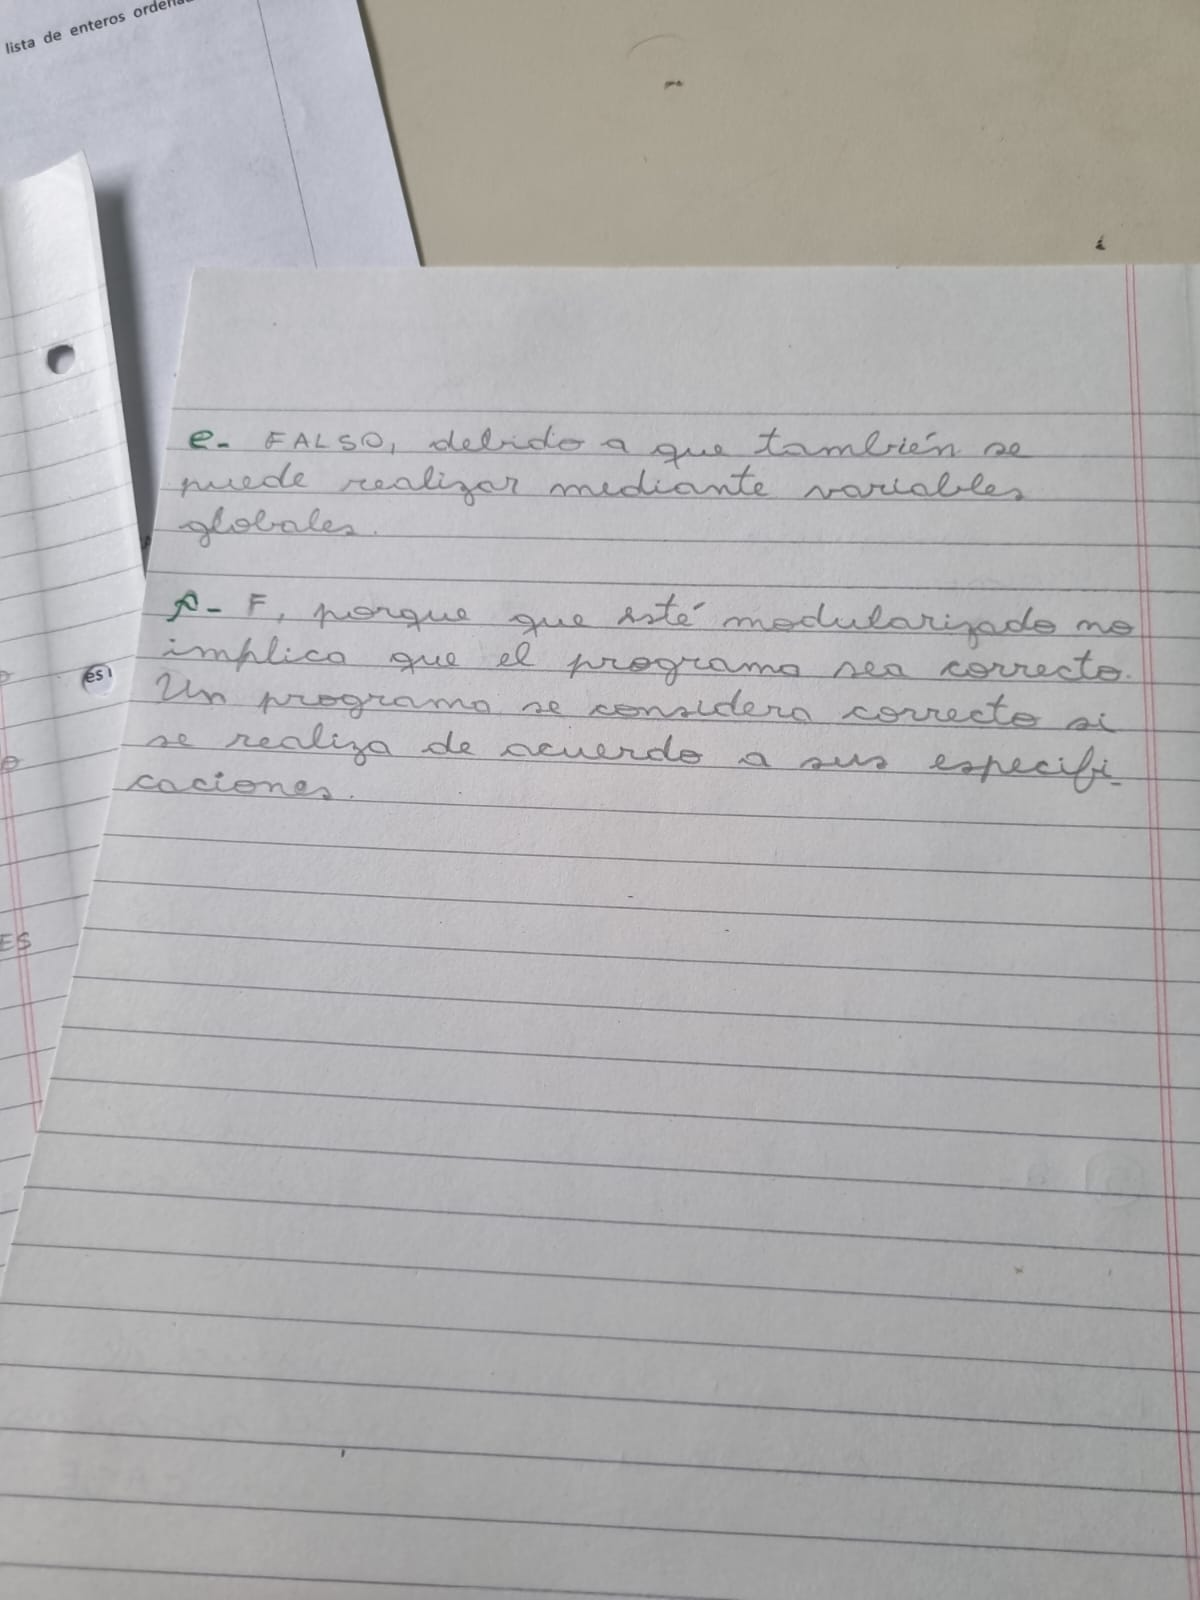 lista de enteros
e- FALSO, debido a que también se
puede realizar mediante variables
globales.
f- F, porque que esté modularizado no
implica que el programa sea correcto.
Un programa se considera correcto si
se realiza de acuerdo a sus especifi-
caciones.
es
ES